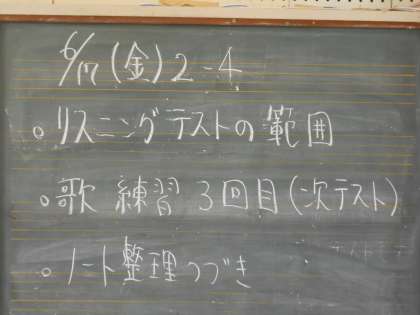 6/17(金)2-4
○リスニングテストの範囲
○歌 練習 3回目(次テスト)
○ノート整理つづき